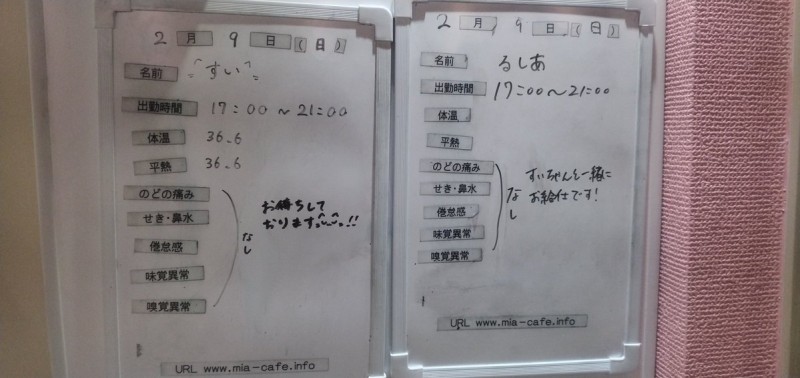 2月9日(日)
名前 すい
出勤時間 17:00～21:00
体温 36.6
平熱 36.6
のどの痛み
せき・鼻水
倦怠感
味覚異常
嗅覚異常
なし
お待ちして
おります!!
URL www.mia-cafe.info
2月9日(日)
名前 るしあ
出勤時間 17:00～21:00
体温
平熱
のどの痛み
せき・鼻水
倦怠感
味覚異常
嗅覚異常
なし
すいちゃんと一緒に
お給仕です!
URL www.mia-cafe.info